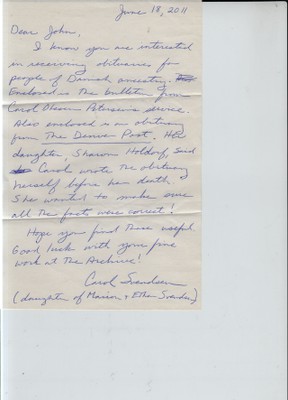 June 18, 2011
Dear John,
I know you are interested
in receiving obituaries for
people of Danish ancestry.
Enclosed is the bulletin from
Carol Olsen Petersen's service.
Also enclosed is an obituary
from The Denver Post. Her
daughter, Sharon Holdorf, said
Carol wrote the obituary
herself before her death.
She wanted to make sure
all the facts were correct!
Hope you find these useful.
Good luck with your fine
work at the Archive!
Carol Svendsen
(daughter of Marion & Ethan Svendsen)